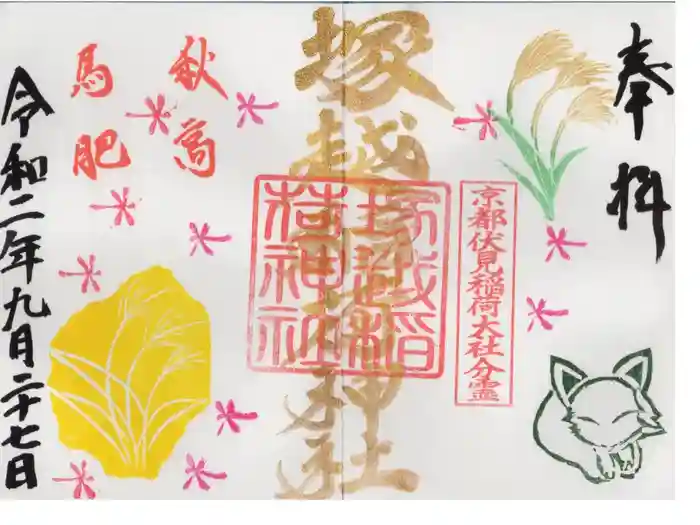 奉拝
京都伏見稲荷大社分霊
塚越稲荷神社
塚越稲
荷神社
秋高
馬肥
令和二年九月二十七日